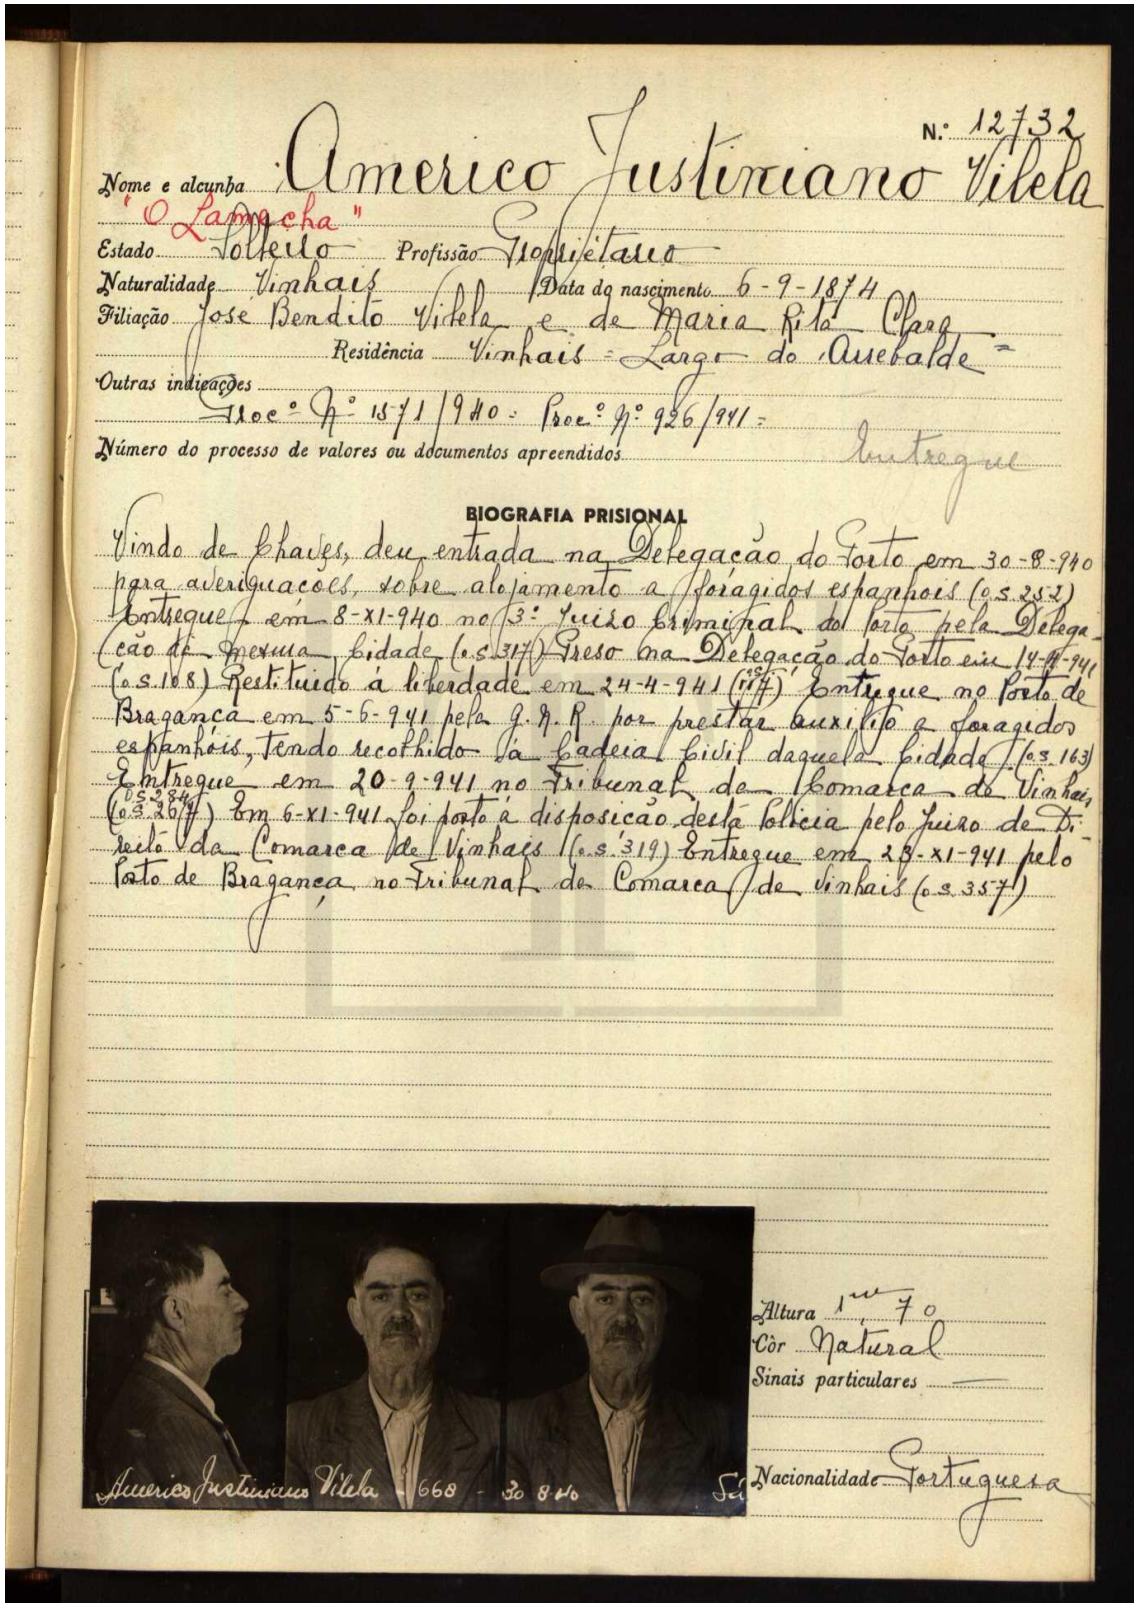 N.º 12732
Nome e alcunha Americo Justiniano Vilela
"O Lamacha"
Estado Solteiro Profissão Proprietario
Naturalidade Vinhais Data do nascimento 6-9-1874
Filiação José Bendito Vilela e de Maria Rita Clara
Residência Vinhais = Largo do Arrebalde =
Outras indicações
Proc.º Nº 1571/940 = Proc.º Nº 926/941 =
Número do processo de valores ou documentos apreendidos
Entregue
BIOGRAFIA PRISIONAL
Vindo de Chaves, deu entrada na Delegação do Porto em 30-8-940
para averiguações, sobre alojamento a foragidos espanhois (o.s.252)
Entregue em 8-XI-940 no 3º Juizo Criminal do Porto pela Delega-
ção da mesma Cidade (o.s.317) Preso na Delegação do Porto em 14-4-941
(o.s.108) Restituido á liberdade em 24-4-941 Entregue no Posto de
Bragança em 5-6-941 pela G.N.R. por prestar auxilio a foragidos
espanhóis, tendo recolhido á Cadeia Civil daquela Cidade (o.s.163)
Entregue em 20-9-941 no Tribunal da Comarca de Vinhais
(o.s.267) o.s.284 Em 6-XI-941 foi posto á disposição desta Policia pelo Juizo de Di-
reito da Comarca de Vinhais (o.s.319) Entregue em 23-XI-941 pelo
Posto de Bragança no Tribunal da Comarca de Vinhais (o.s.357)
Altura 1m 70
Côr Natural
Sinais particulares —
Nacionalidade Portuguesa
Americo Justiniano Vilela - 668 - 30 8.40